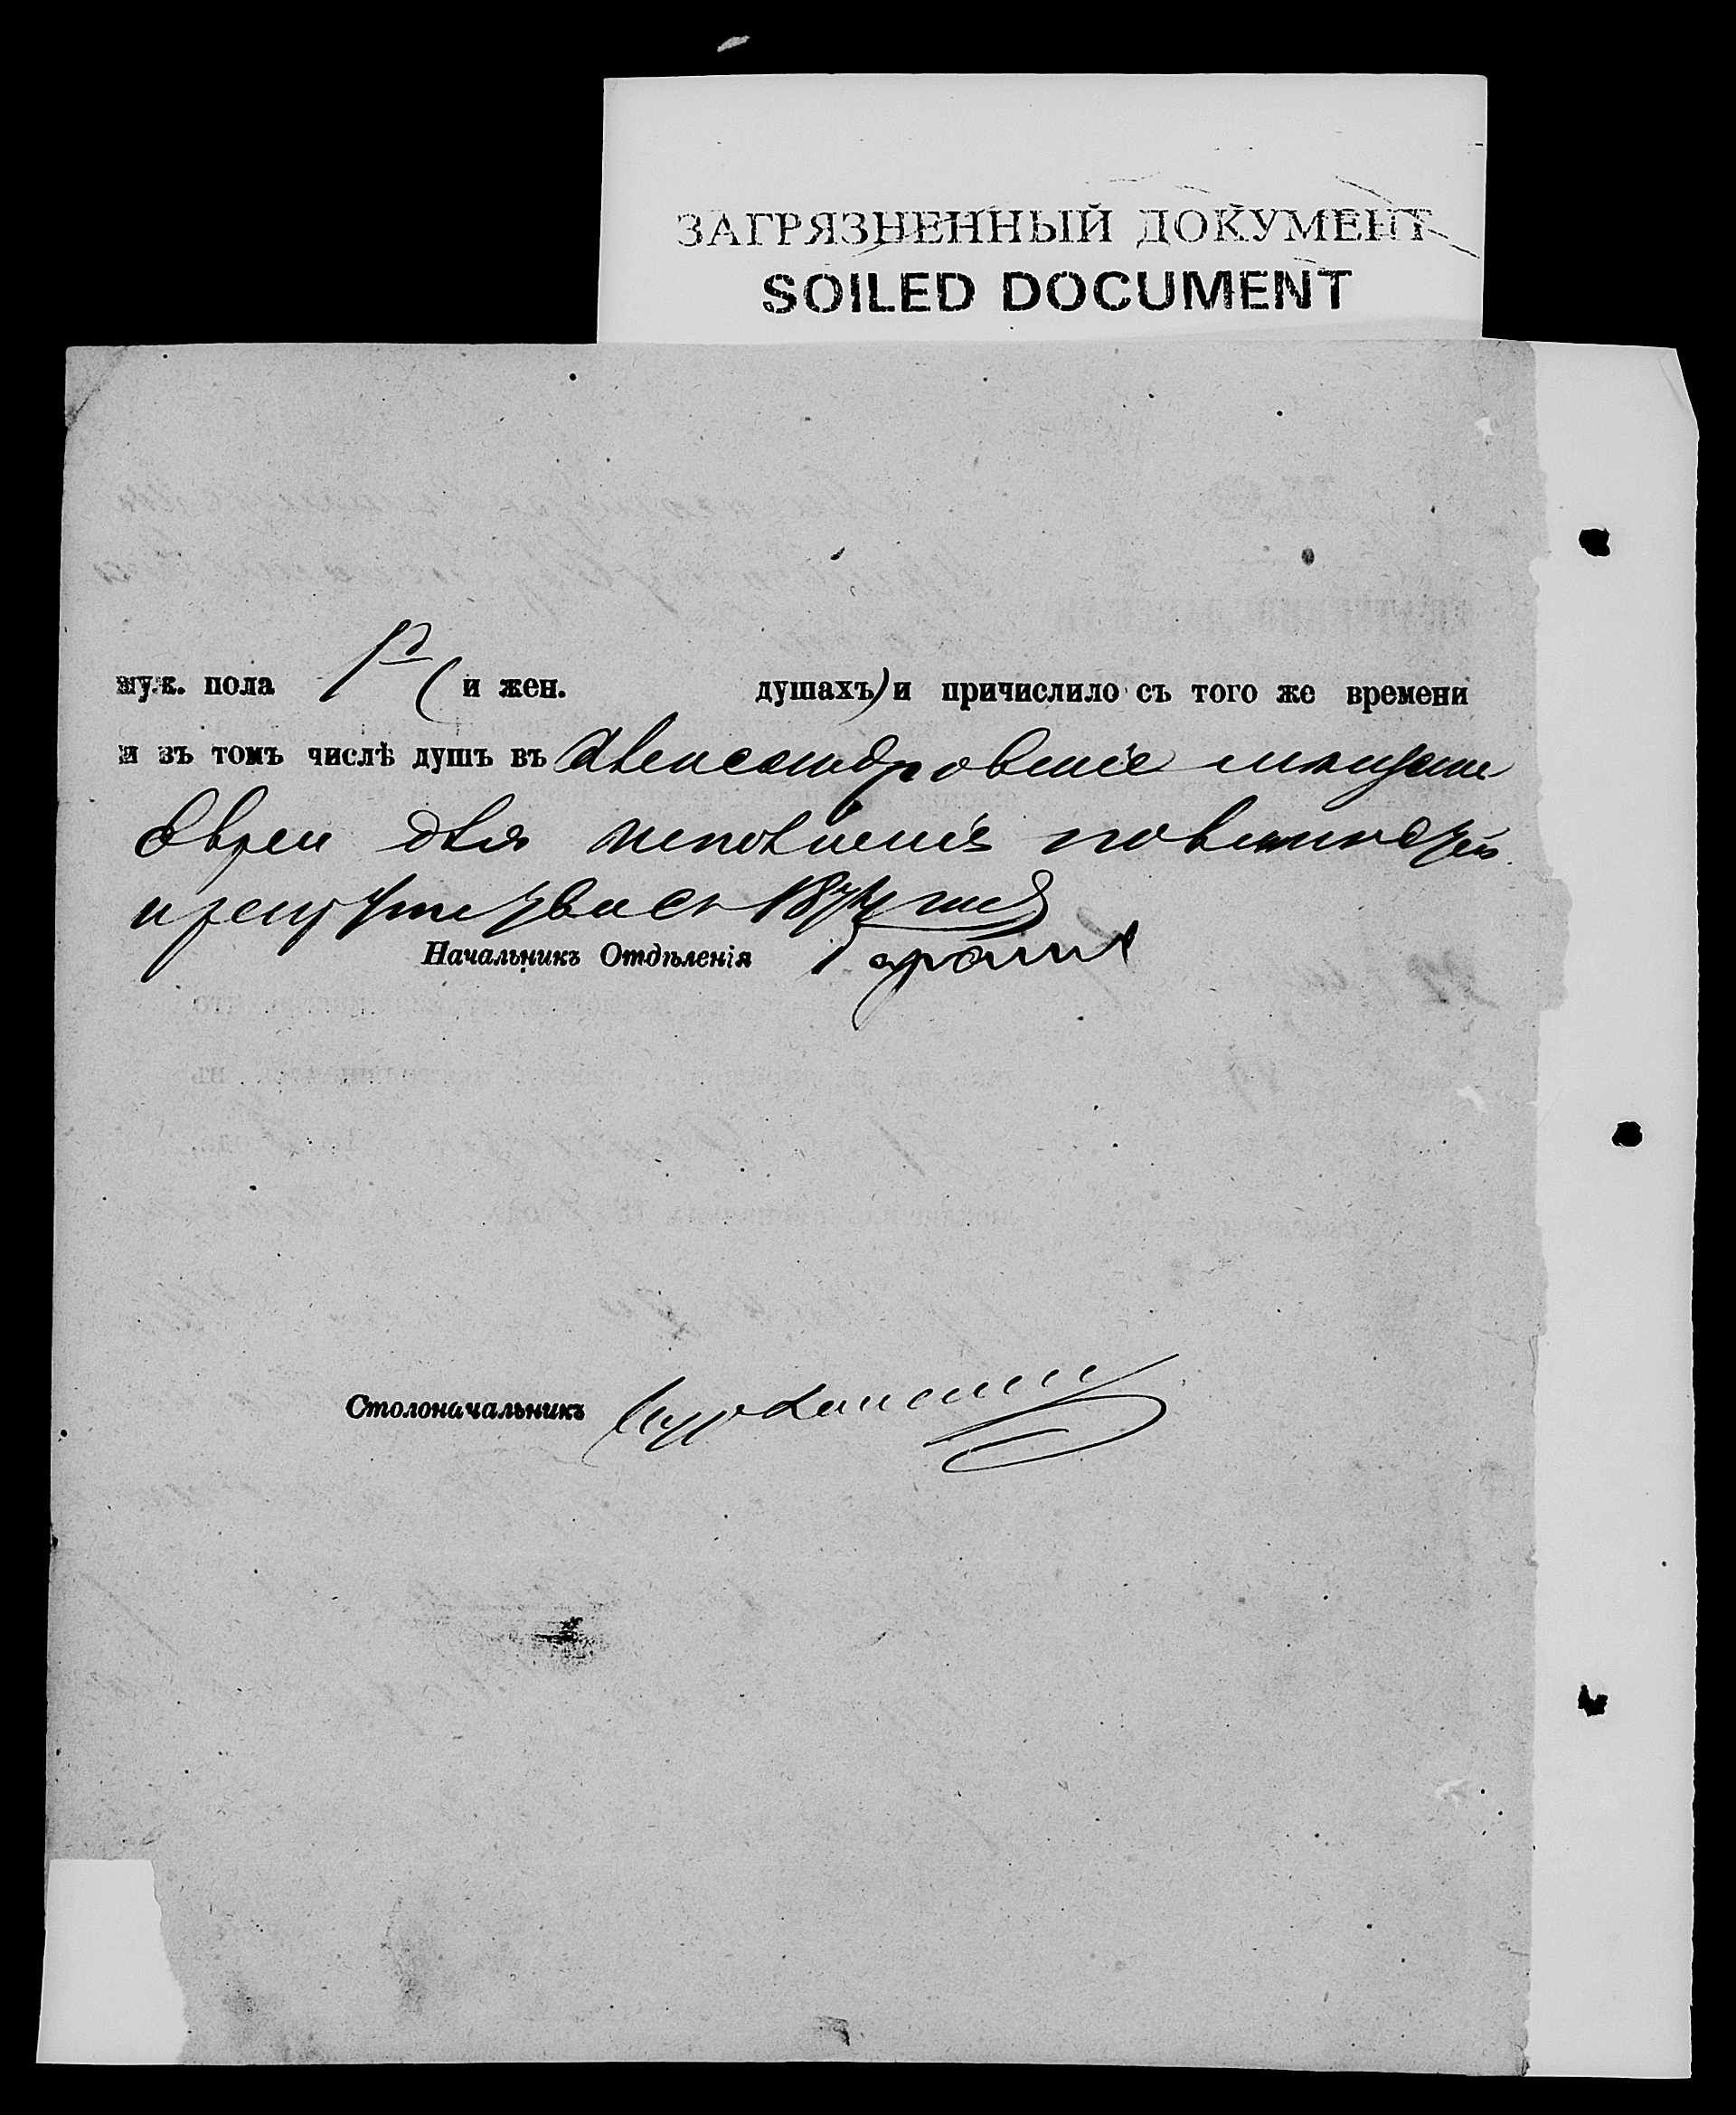 ЗАГРЯЗНЕННЫЙ ДОКУМЕНТ
SOILED DOCUMENT
муж. пола 1й (и жен. душахъ) и причислило съ того же времени
и въ томъ числѣ душъ въ Александровскіе мѣщане
Евреи для исполненія повинностей
1874
Начальникъ Отдѣленія
Столоначальникъ